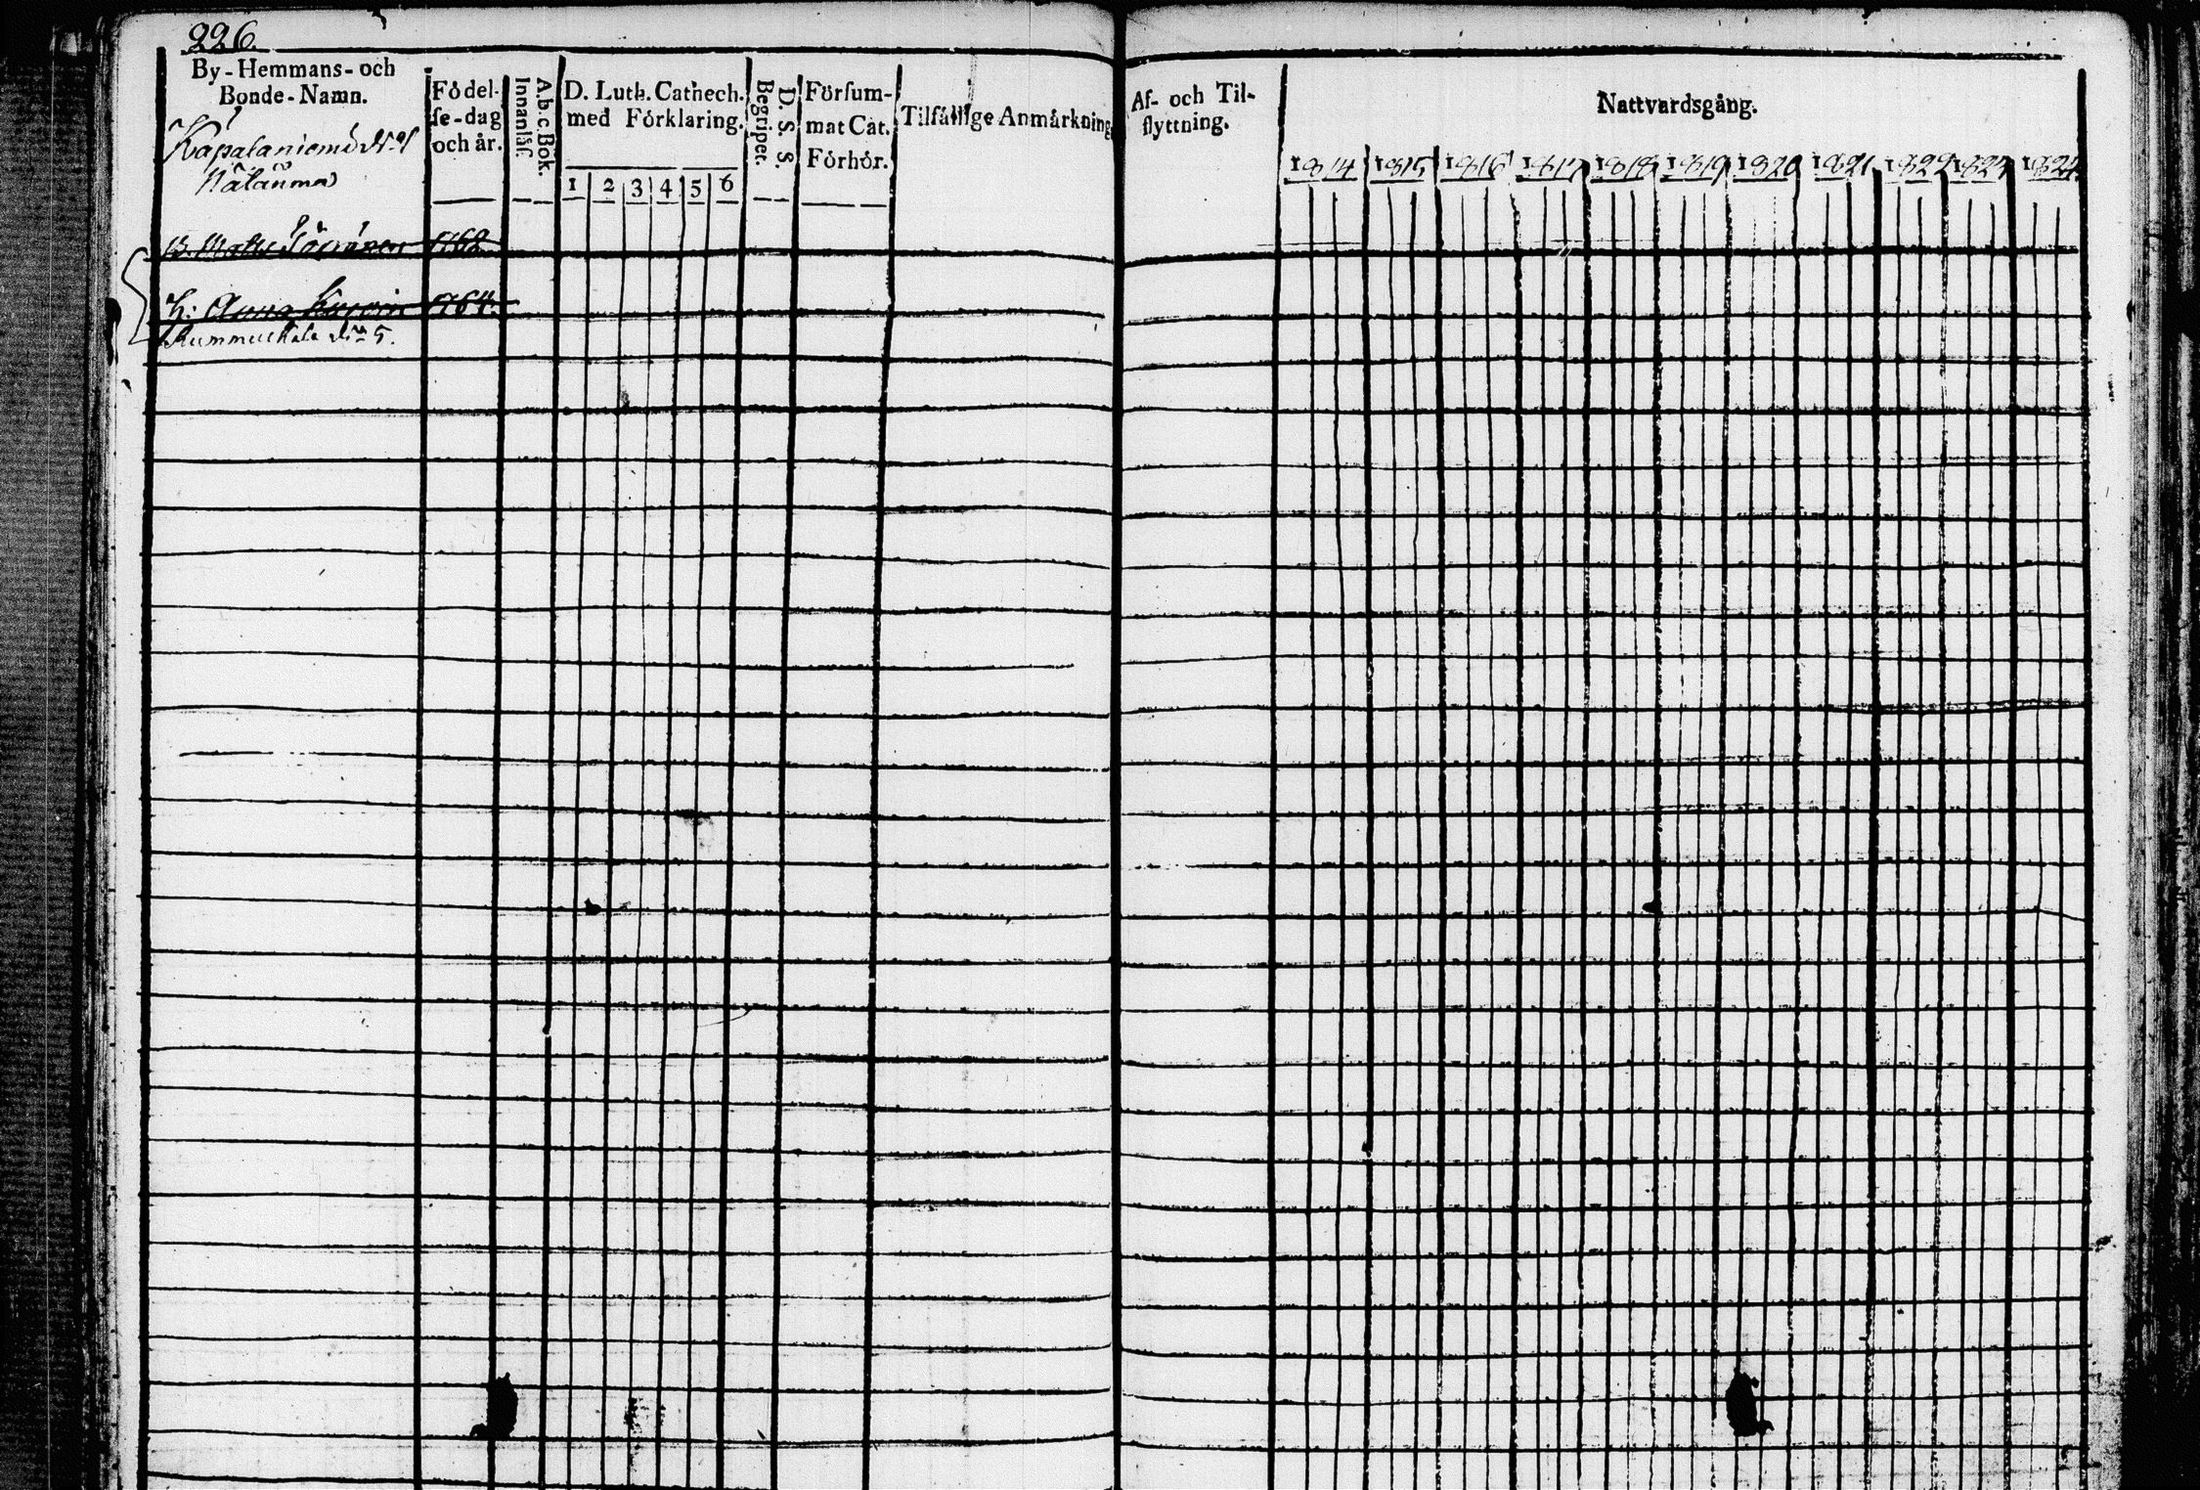 226.
By-Hemmans- och
Bonde-Namn.
Kapalaniemi No 1
Födel-
se-dag
och år.
A.b.c. Bok.
Innanläs.
D. Luth. Cathech.
med Förklaring.
1 2 3 4 5 6
D. S. S.
Begriper.
Försum-
mat Cat.
Förhör.
Tilfällige Anmärkning
Af- och Til-
flyttning.
Nattvardsgång.
1814 1815 1816 1817 1818 1819 1820 1821 1822 1823 1824
B. Matts 1762
H: Anna 1764.
No 5.